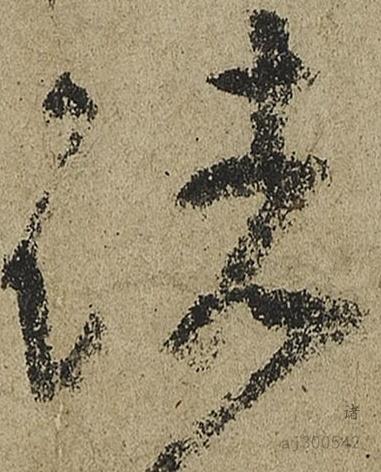 诸
诸
aj300542